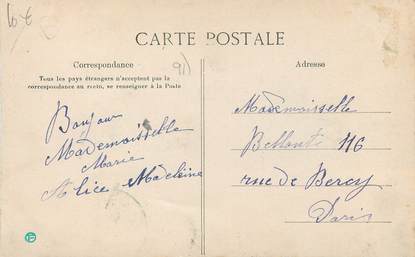 10 €
CARTE POSTALE
Correspondance
Tous les pays étrangers n'acceptent pas la
correspondance au recto, se renseigner à la Poste
Adresse
Bonjour
Mademoisselle
Marie
Alice Madeleine
Mademoisselle
116
rue de Bercy
Paris